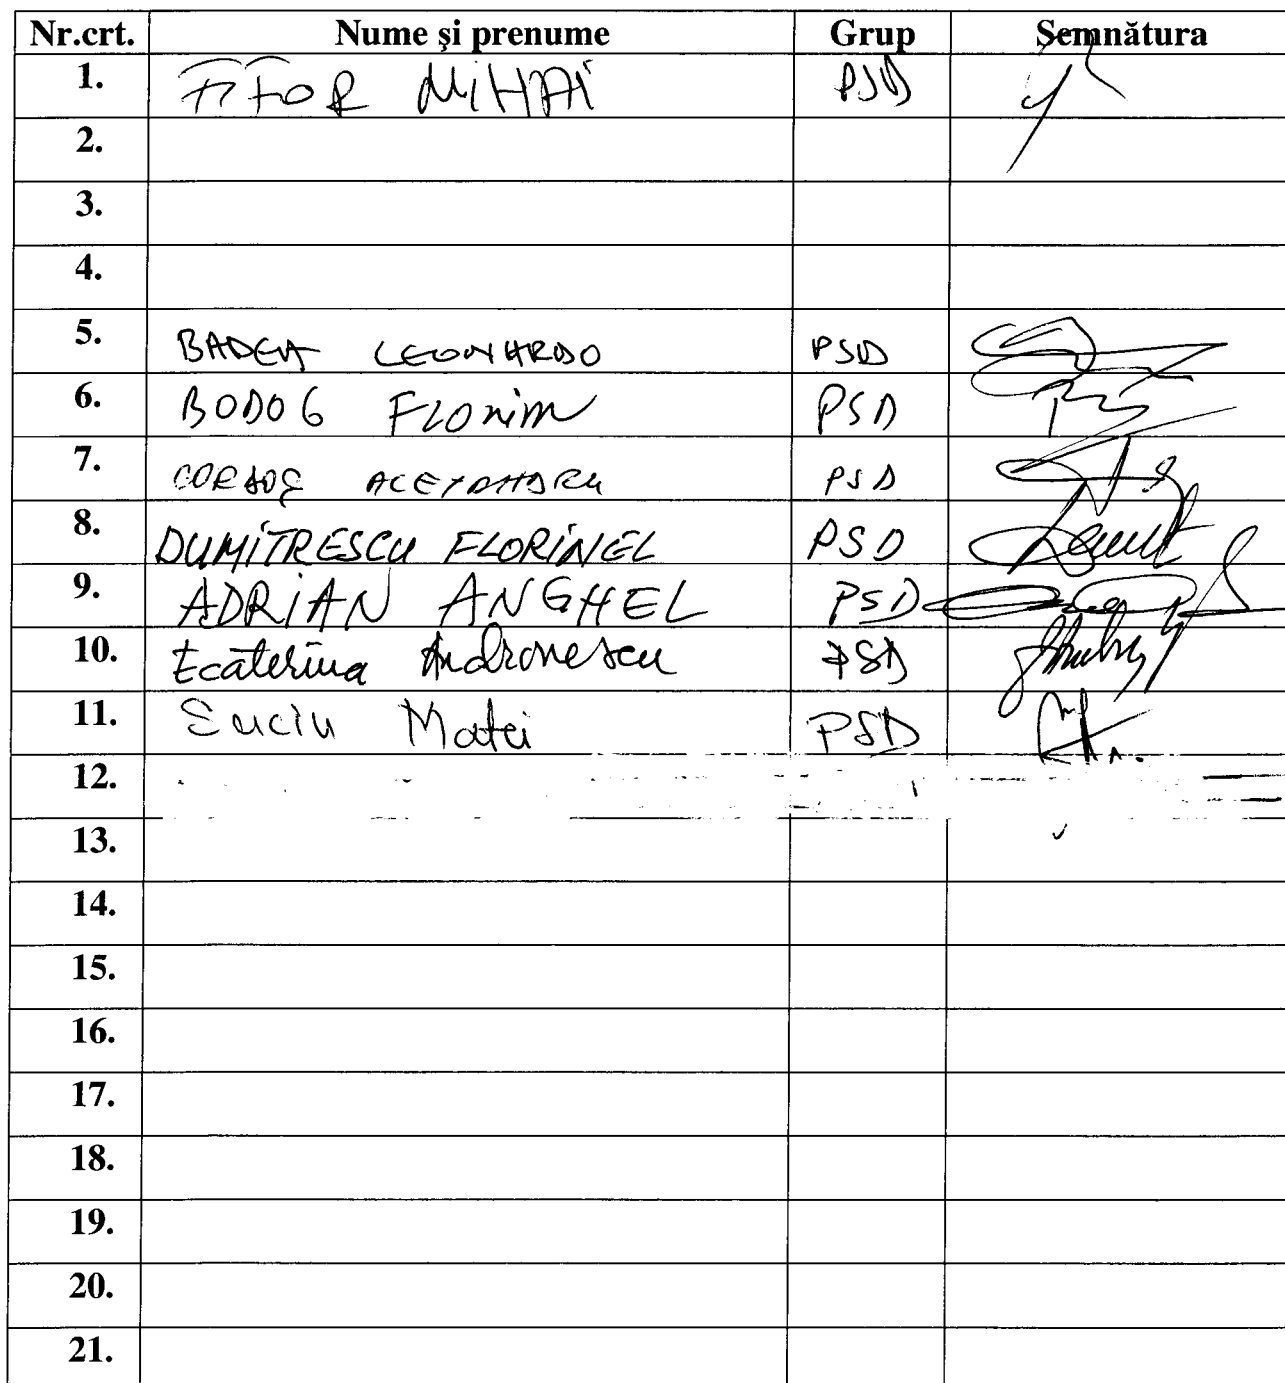 Nr.crt. Nume și prenume Grup Semnătura
1. FIFOR MIHAI PSD
2.
3.
4.
5. BADEA LEONARDO PSD
6. BODOG Florin PSD
7. CORDOȘ ALEXANDRU PSD
8. DUMITRESCU FLORINEL PSD
9. ADRIAN ANGHEL PSD
10. Ecaterina Andronescu PSD
11. Suciu Matei PSD
12.
13.
14.
15.
16.
17.
18.
19.
20.
21.